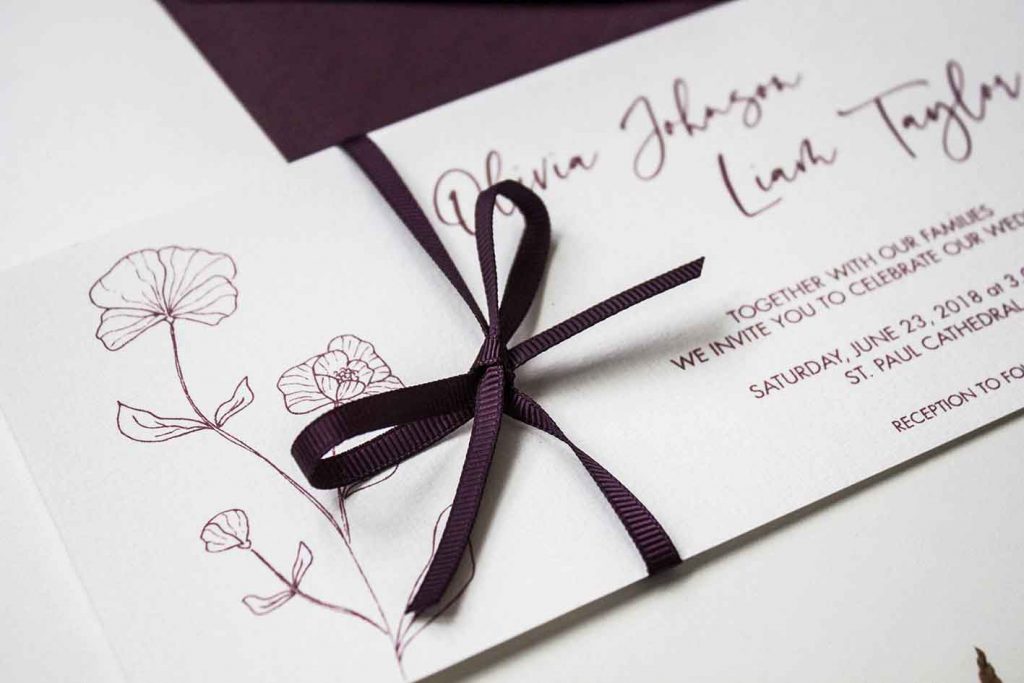 Olivia Johnson
Liam Taylor
TOGETHER WITH OUR FAMILIES
WE INVITE YOU TO CELEBRATE OUR
SATURDAY, JUNE 23, 2018 at
ST. PAUL CATHEDRAL
RECEPTION TO